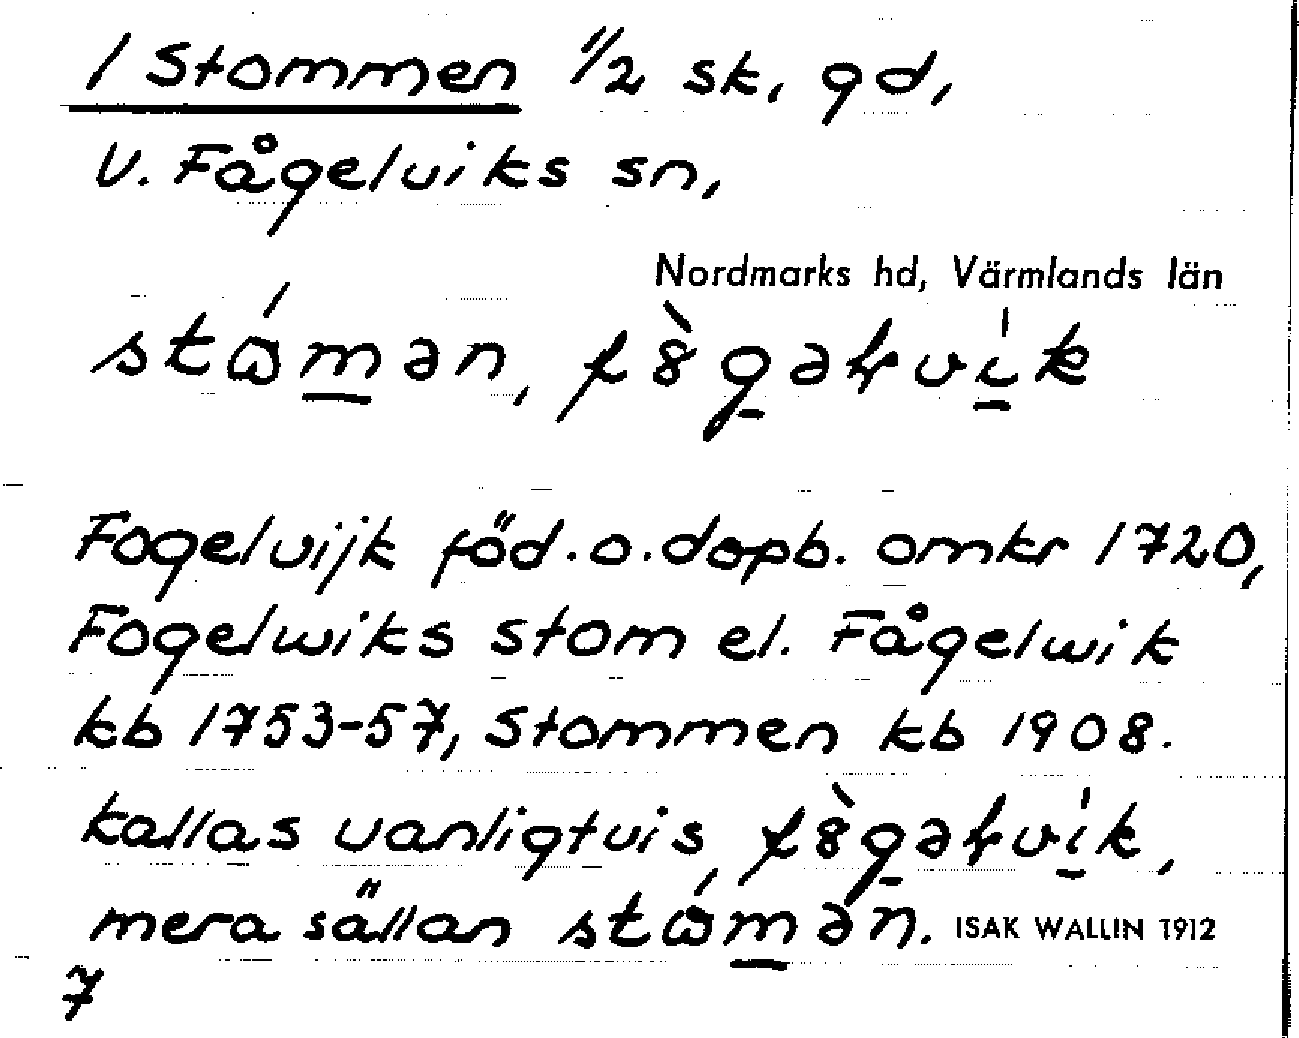 1 Stommen 1/2 sk, gd,
V. Fågelviks sn,
Nordmarks hd, Värmlands län
Fogelvijk föd. o. dopb. omkr 1720,
Fogelwiks stom el. Fågelwik
kb 1753-57, Stommen kb 1908.
kallas vanligtvis
mera sällan
ISAK WALLIN 1912
7